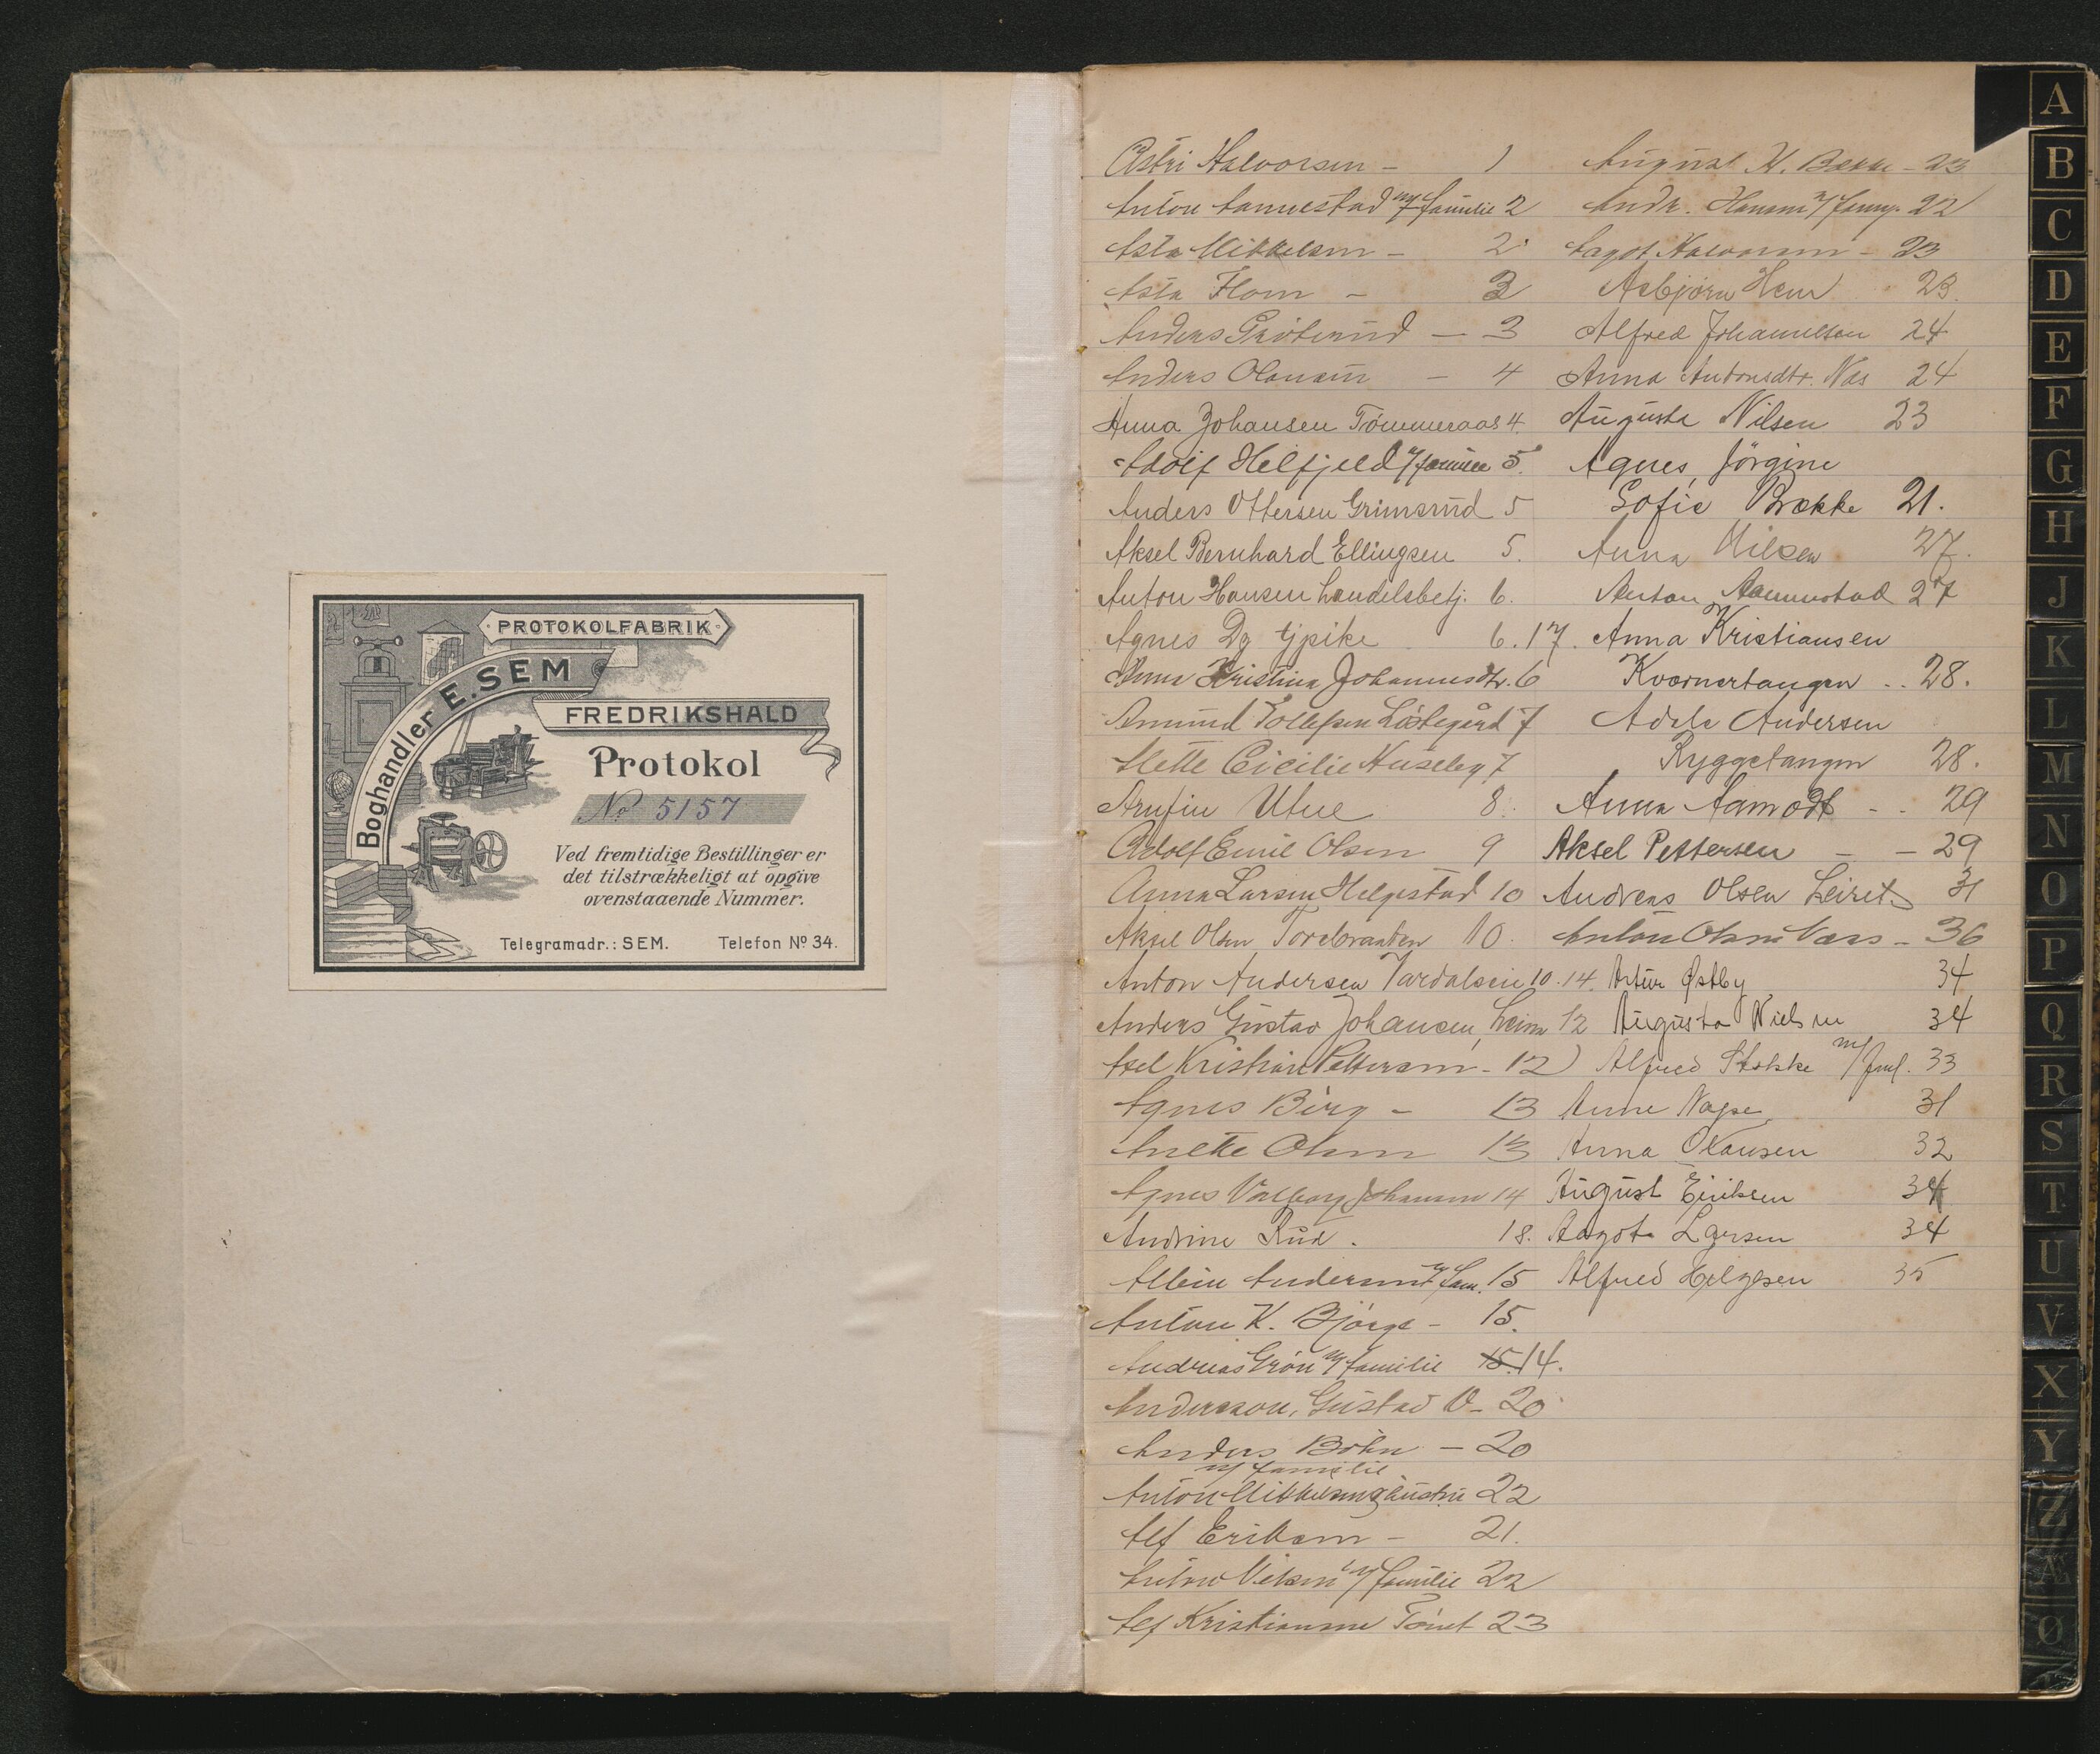 PROTOKOLFABRIK
Boghandler E. SEM
FREDRIKSHALD
Protokol
No 5157
Ved fremtidige Bestillinger er
det tilstrækkeligt at opgive
ovenstaaende Nummer.
Telegramadr.: SEM. Telefon No 34.
Astri Halvorsen - 1
Anton Aannestad m/familie 2
Asta Mikkelsen - 2
Asta Flom - 3
Anders - 3
Anders - 4
Anna Johansen Tömmeraas 4.
Adolf Helfjeld m/familie 5.
Anders Ottersen Grimsrud 5
Aksel Bernhard Ellingsen 5.
Anton Hansen handelsbetj. 6.
Agnes Dg tjpike 6. 17.
Anna Kristina Johannesdtr. 6
Amund Tollefsen 7
Mette Cicilie Huseby 7
Arnfin Utne 8.
Adolf Emil Olsen 9
Anna Larsen Helgestad 10
Aksel Olsen Torebraaten 10.
Anton Andersen 10. 14.
Anders Gustav Johansen, 12
Axel Kristian Pettersen - 12
Agnes Berg - 13
Anette Olsen 13
Agnes Valborg Johansen 14
Andrine Rud. 18.
Albin Andersen m/fam. 15
Anton K. Bjørge - 15.
Andreas Grön m/familie 15. 14.
Andersson, Gustav O - 20
Anders Böhn - 20
m/familie
Anton Mikkelsen 22
Alf Eriksen - 21.
Anton Nilsen m/familie 22
Alf Kristiansen 23
August K. Bække - 23
Andr. Hansen m/ 22
Aagot Halvorsen - 23
Asbjørn Hem 23.
Alfred Johannessen 24
Anna Antonsdtr. Næs 24
Augusta Nilsen 23
Agnes Jörgine
Sofie Bække 21.
Anna Nilsen 27.
Anton Aannestad 27
Anna Kristiansen
Kværnertangen .. 28.
Adele Andersen
Ryggetangen 28.
Anna Aamodt - . 29
Aksel Pettersen - - 29
Andreas Olsen Leiret 31
Anton Olsen Næss - 36
Artur Østby 34
Augusta Nielsen 34
Alfred Stokke m/faml. 33
Anne 31
Anna Olausen 32
August Eriksen 34
Aagot Larsen 34
Alfred Helgesen 35
A
B
C
D
E
F
G
H
J
K
L
M
N
O
P
Q
R
S
T
U
V
X
Y
Z
Æ
Ø